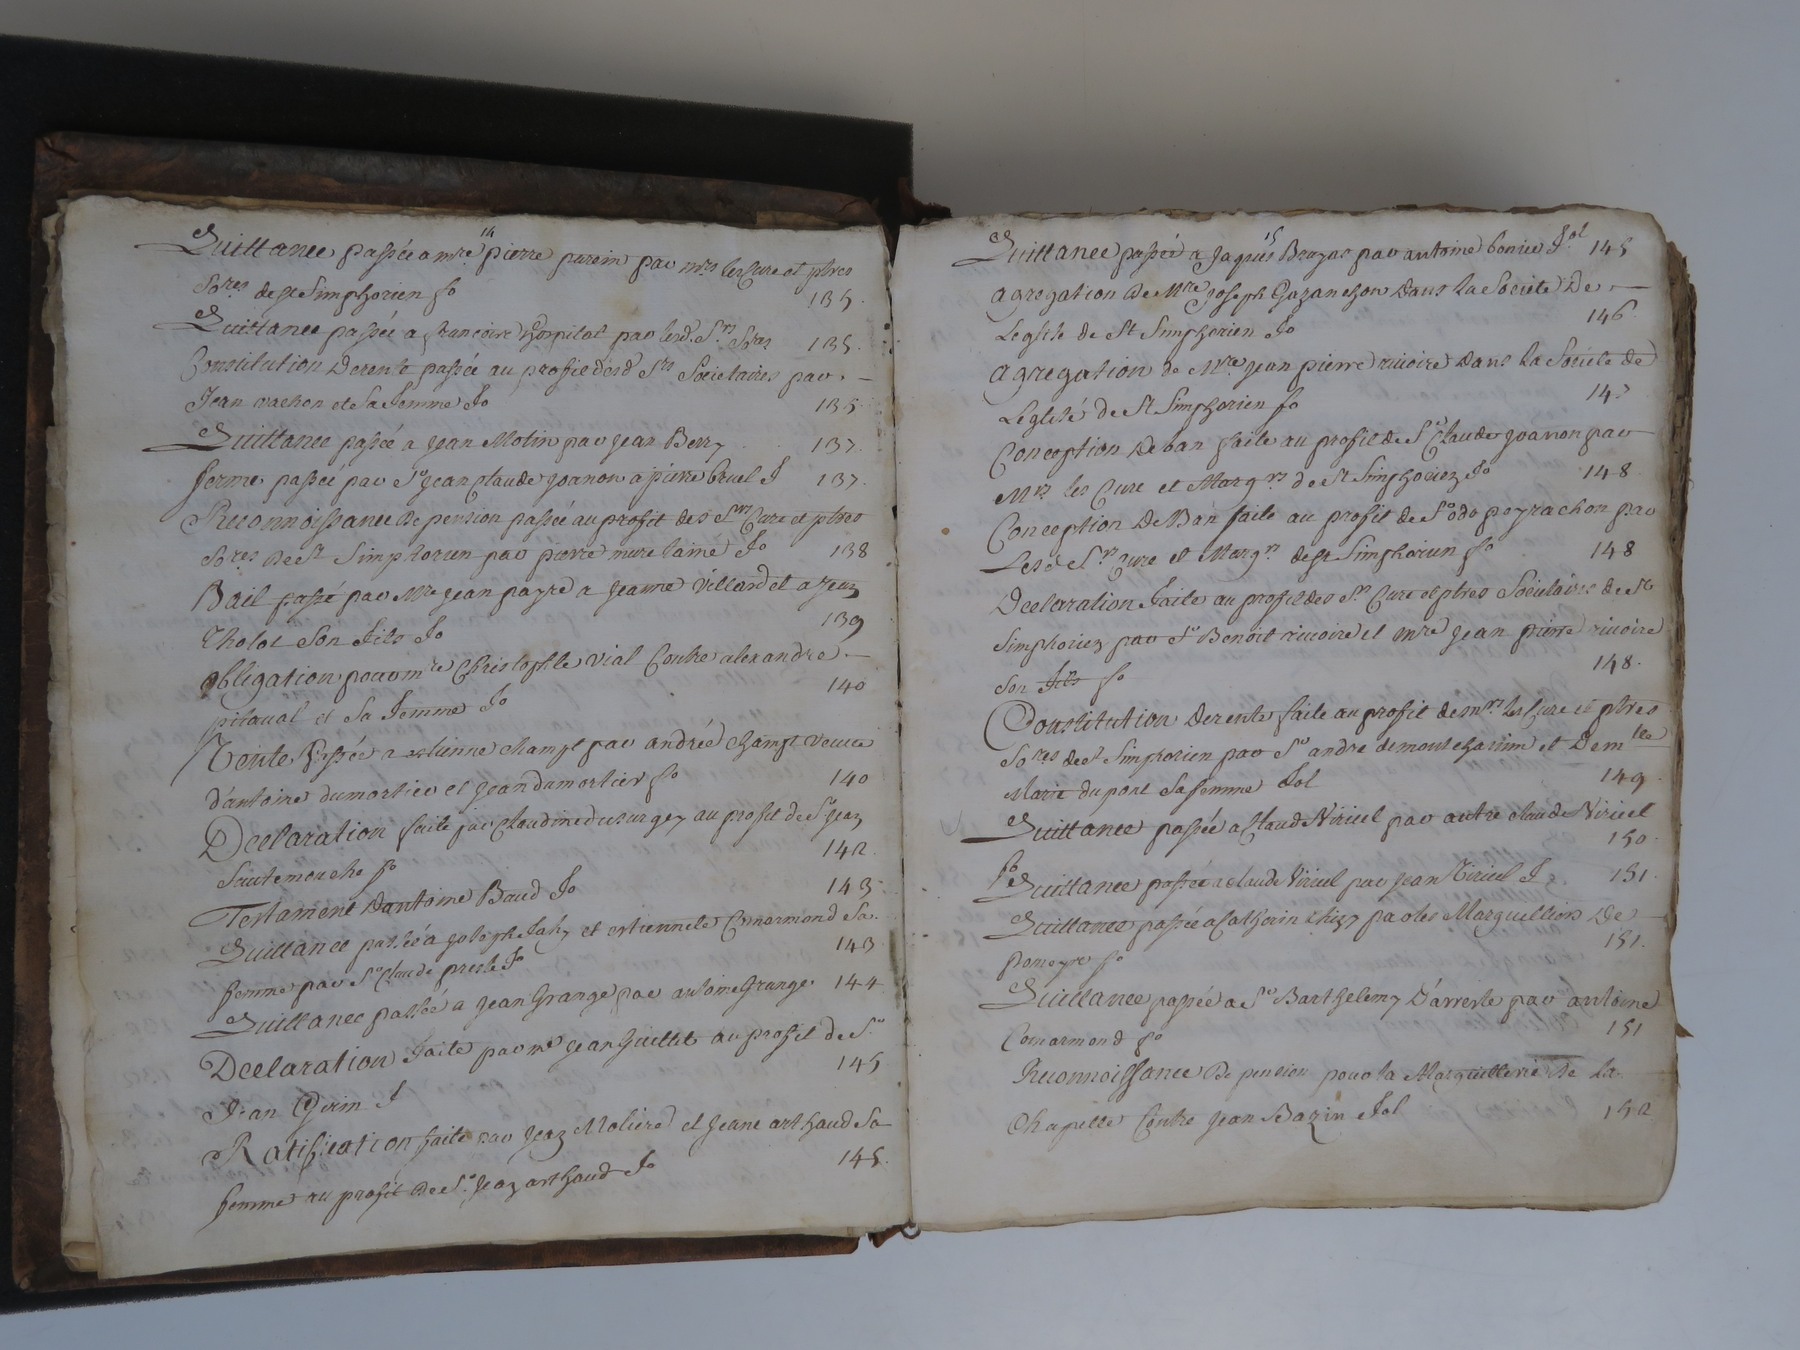 14
Quittance passée a mre pierre purein par mrs les Cure et pbres
Sores de St Simphorien fo 135.
Quittance passée a francoise hospital par lesd. Srs Sores 135.
Constitution De rente passée au profit desd Srs Societaires par
Jean vachon et Sa femme fo 135.
Quittance passée a Jean Molin par Jean Berry 137.
ferme passée par Sr Jean Claude Joannon a pierre bruel f 137.
Reconnoissance De pension passée au profit des Srs Cure et pbres
Sores De St Simphorien par pierre mure laine fo 138
Bail passé par Mre Jean payre a Jeanne Villard et a Jean
Tholot Son fils fo 139
obligation pour mre Christophle vial Contre alexandre
pitaval et Sa femme fo 140
Vente Passée a estienne champt par andrée champt veuve
d'antoine dumortier et Jean dumortier fo 140
Declaration faite par Claudine dusurgey au profit de Sr Jean
Sautemouche fo 142.
Testament D'antoine Baud fo 143.
Quittance passée a Joseph Jahy et estiennete Comarmond Sa
femme par Sr Claude presle fo 143
Quittance passée a Jean Grange par antoine Grange 144
Declaration faite par me Jean Guillet au profit de Sr
Jean Gerin f 145
Ratification faite par Jean Moliere et Jeane arthaud Sa
femme au profit De Sr Jean arthaud fo 145.
15
Quittance passée a Jaques Bruyas par antoine bonier fol 145
Agregation De Mre Joseph Gazanchon Dans la Societé De
Leglise de St Simphorien fo 146.
Agregation de Mre Jean pierre rivoire Dans la Societe de
Leglise de St Simphorien fo 147
Conception De ban faite au profit de Sr Claude Joannon par
Mrs les Cure et Margrs de St Simphorien fo 148
Conception De Ban faite au profit de Sr odo peyrachon par
Lesd. Srs Cure et Margrs de St Simphorien fo 148
Declaration faite au profit des Srs Cure et pbres Societaires de St
Simphorien par Sr Benoit rivoire et mre Jean pierre rivoire
Son fils fo 148.
Constitution De rente faite au profit de mrs les Cure et pbres
Sores de St Simphorien par Sr andre demontchanim et Demlle
Marie dupont Sa femme fol 149.
Quittance passée a Claude Viricel par autre claude Viricel
fo 150.
Quittance passée a claude Viricel par Jean Viricel f 151.
Quittance passée a Catherin chizy par les Marguilliers De
pomeys fo 151.
Quittance passée a Sr Barthelemy D'arreste par antoine
Comarmond fo 151
Reconnoissance De pension pour la Marguillerie De la
Chapelle Contre Jean Bazin fol 152